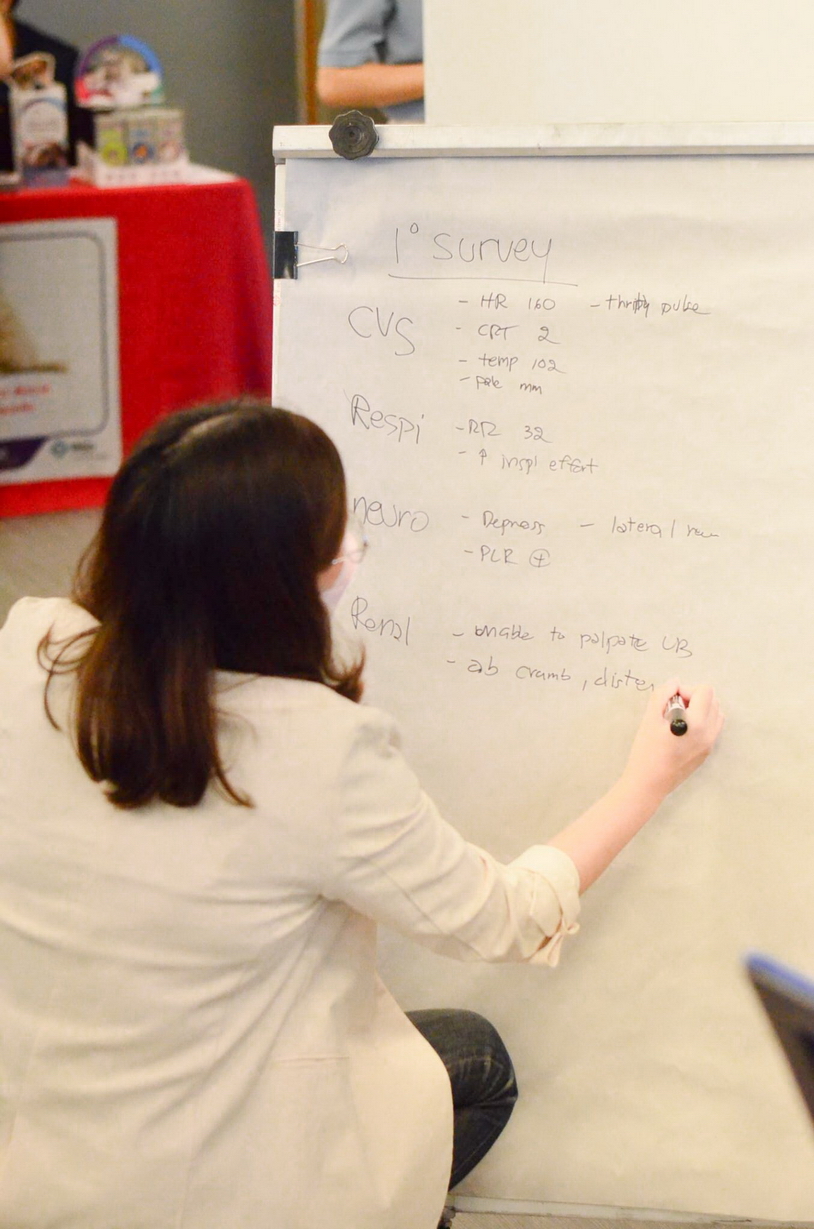 1° survey
CVS
- HR 160 - thrifty pulse
- CRT 2
- temp 102
- pale mm
Respi
- RR 32
- ↑ inspi effort
neuro
- Depress - lateral
- PLR ⊕
Renal
- unable to palpate UB
- ab cramb, disten